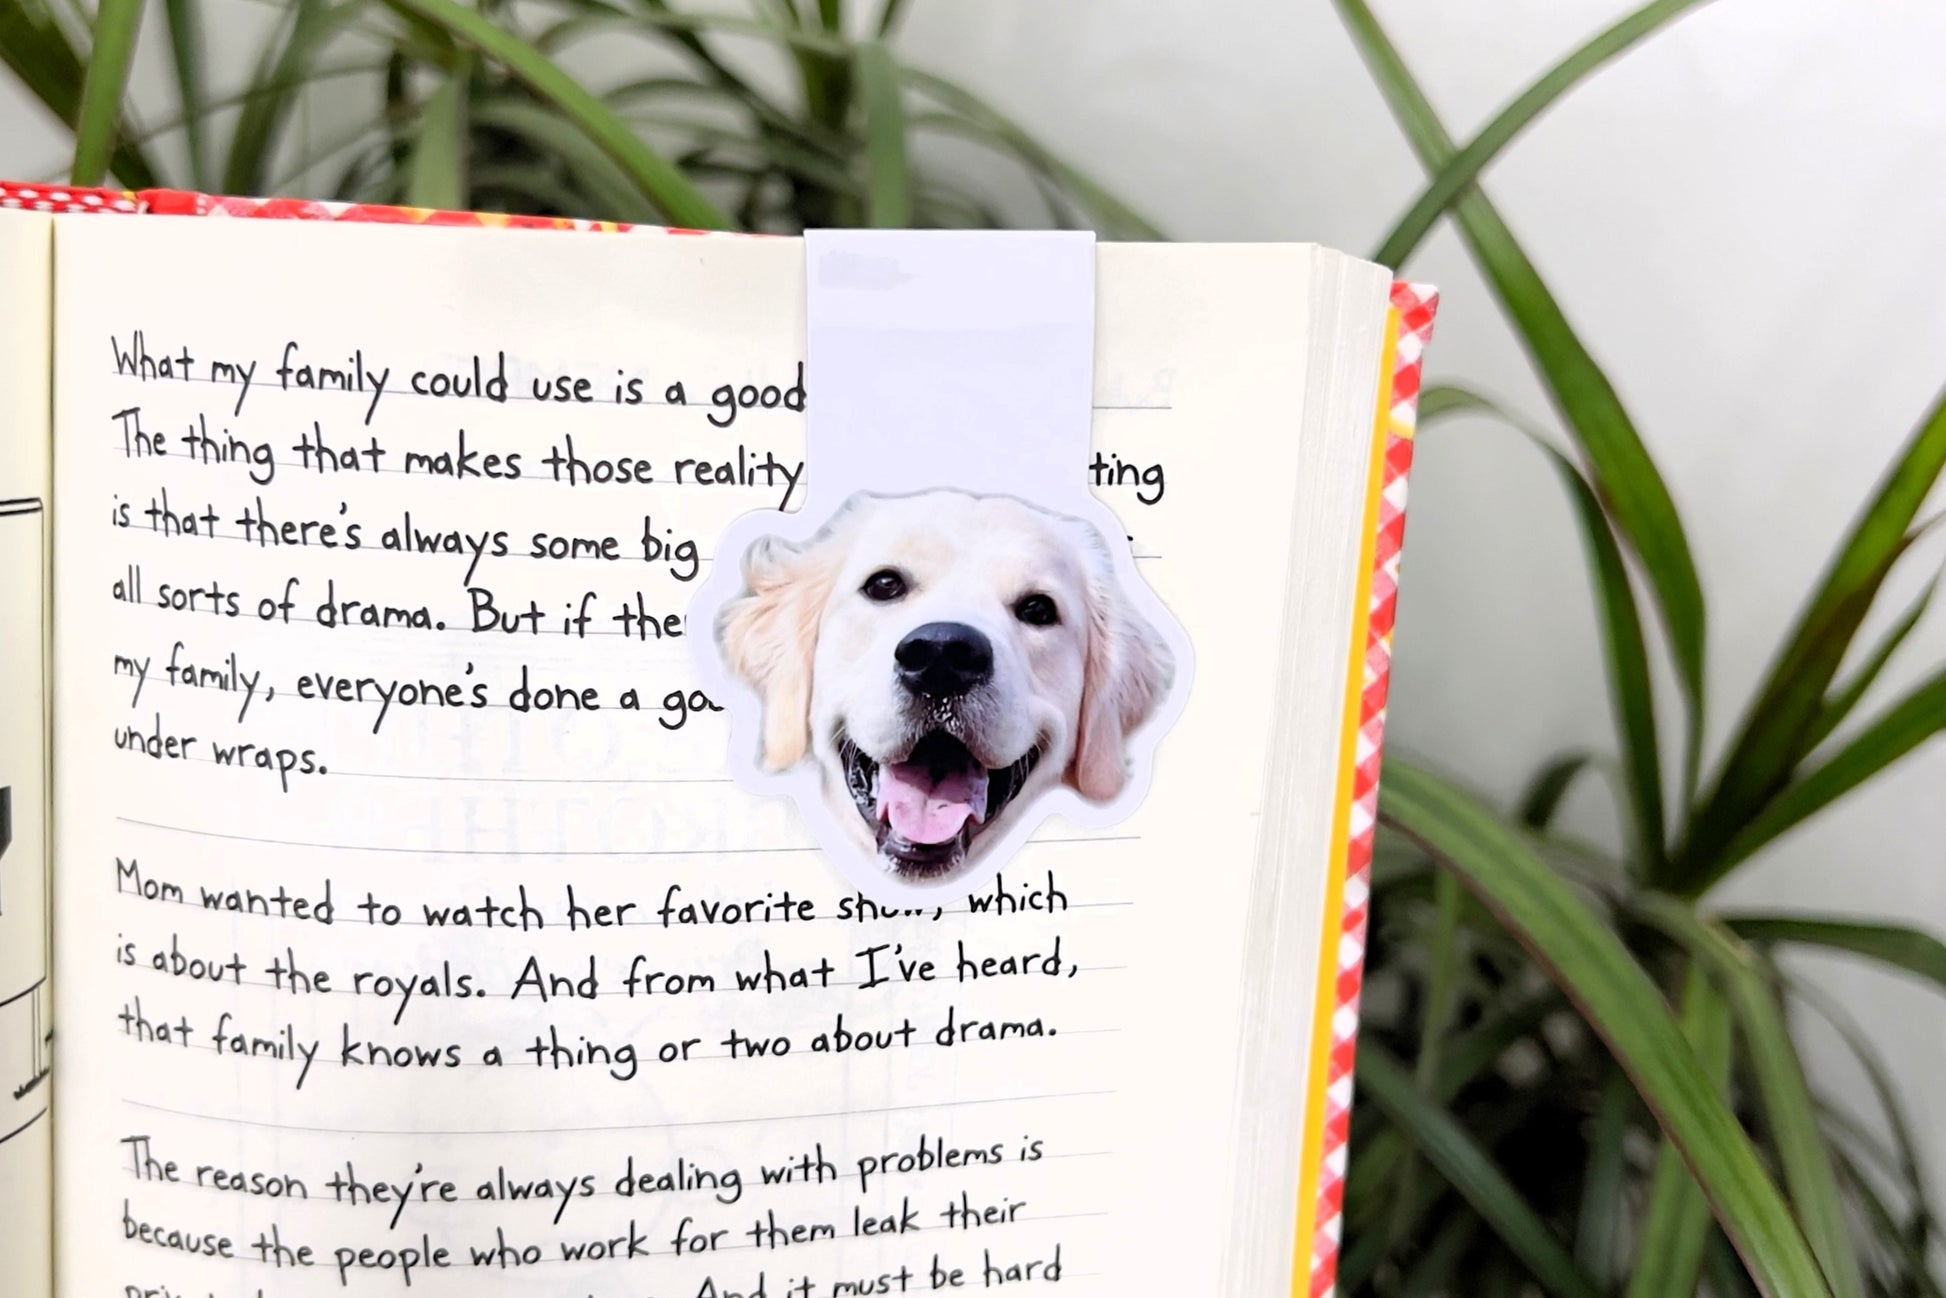 What my family could use is a good
The thing that makes those reality ting
is that there's always some big
all sorts of drama. But if the
my family, everyone's done a go
under wraps.
Mom wanted to watch her favorite which
is about the royals. And from what I've heard,
that family knows a thing or two about drama.
The reason they're always dealing with problems is
because the people who work for them leak their
And it must be hard